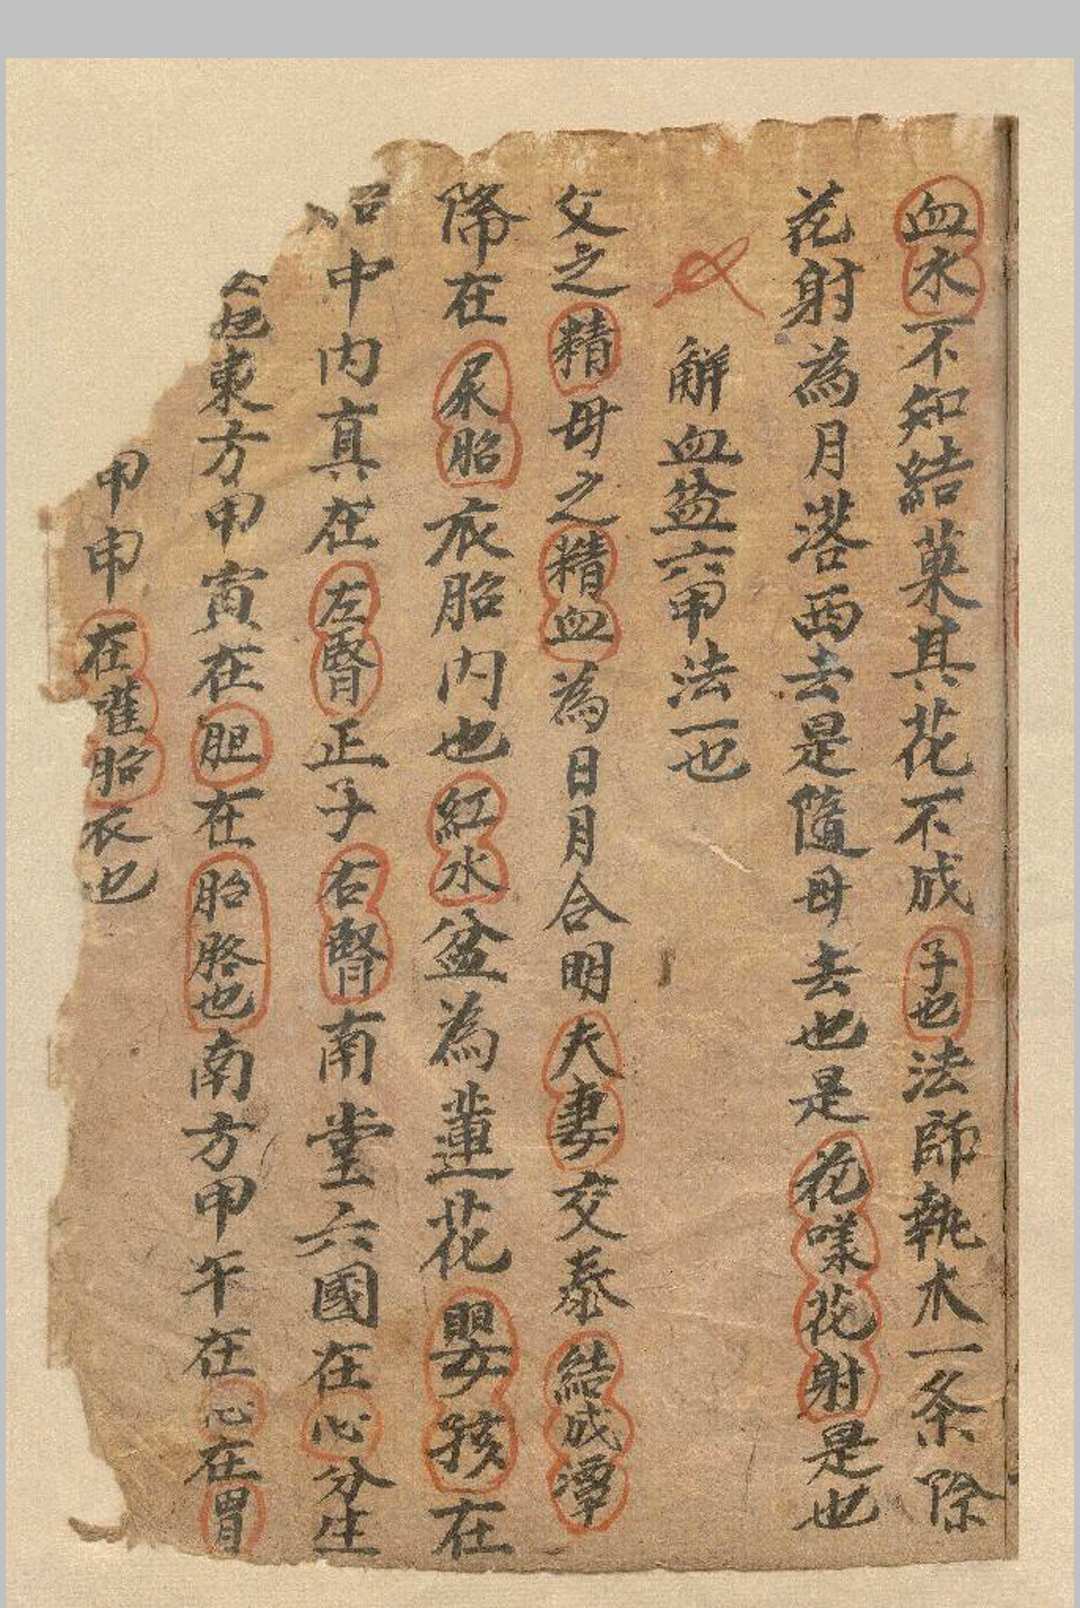 血水不知結菓其花不成子也法師執水一条除
花射為月落西去是隨母去也是花嘆花射是也
解血盆六甲法一也
父之精母之精血為日月合明夫妻交泰結成潭
降在尿胎衣胎内也紅水盆為蓮花嬰孩在
中内真在左腎正子右腎南堂六國在心分生
東方甲寅在胆在胎胳也南方甲午在心在胃
甲申在舊胎衣也